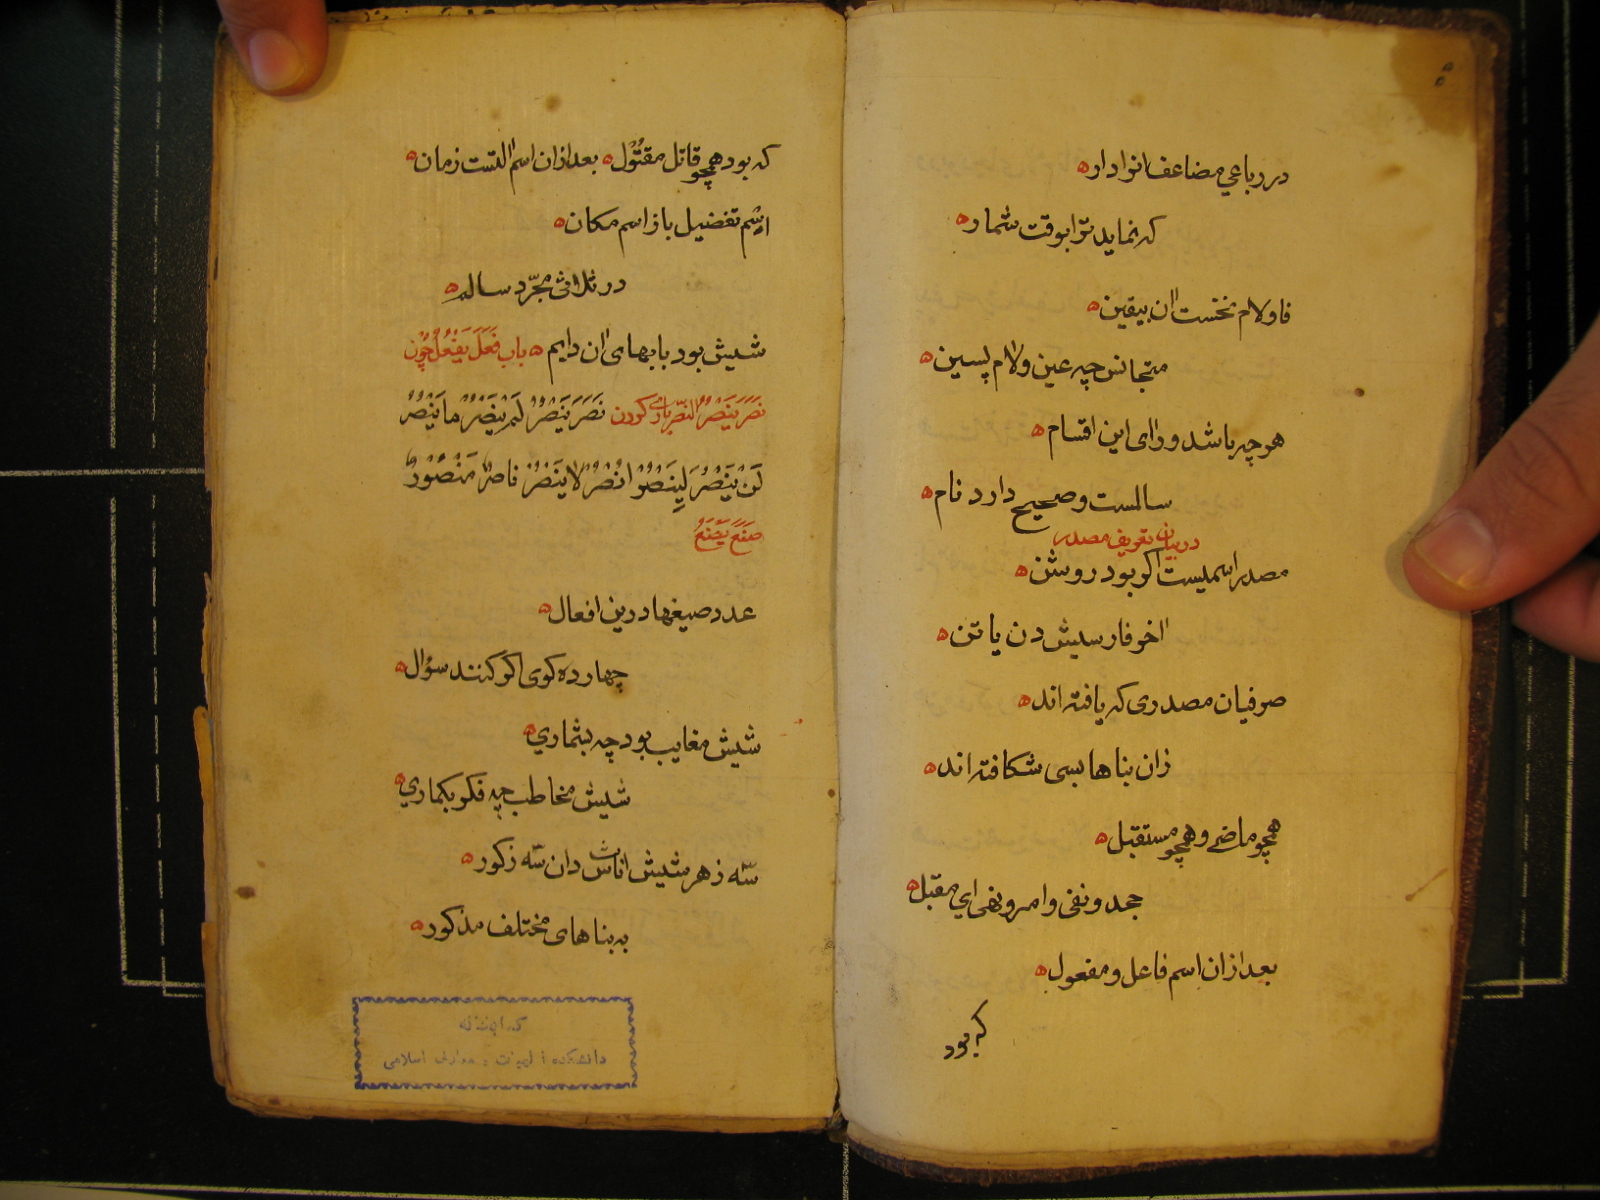 در رباعی مضاعف انرا دار
که نماید ترا بوقت شمار
فا و لام نخست ان بیقین
متجانس چه عین و لام پسین
هر چه باشد ورای این اقسام
سالمست و صحیح دارد نام
در بیان تعریف مصدر
مصدر اسمیست اکر بود روشن
اخر فارسیش دن یا تن
صرفیان مصدری که یافته اند
زان بناها بسی شکافته اند
همچو ماضی و همچو مستقبل
جحد و نفی و امر و نهی ای مقبل
بعد ازان اسم فاعل و مفعول
که بود
که بود همچو قاتل مقتول بعد ازان اسم التست زمان
اسم تفضیل باز اسم مکان
در ثلاثی مجرّد سالم
شیش بود بابهای ان دایم باب فَعَلَ یَفْعُلُ چون
نَصَرَ یَنْصُرُ النّصر یاری کردن نَصَرَ یَنْصُرُ لَمْ یَنْصُرْ ما یَنْصُرُ
لَنْ یَنْصُرَ لِیَنْصُرْ اُنْصُرْ لا یَنْصُرْ ناصِرٌ مَنْصُورٌ
صَنَعَ یَصْنَعُ
عدد صیغها درین افعال
چهارده کوی اکر کنند سؤال
شیش مغایب بود چه بشماری
شیش مخاطب چه فکر بکماری
سه ز هر شیش اناث دان سه زکور
به بناهای مختلف مذکور
کتابخانه
دانشکده الهیات و معارف اسلامی